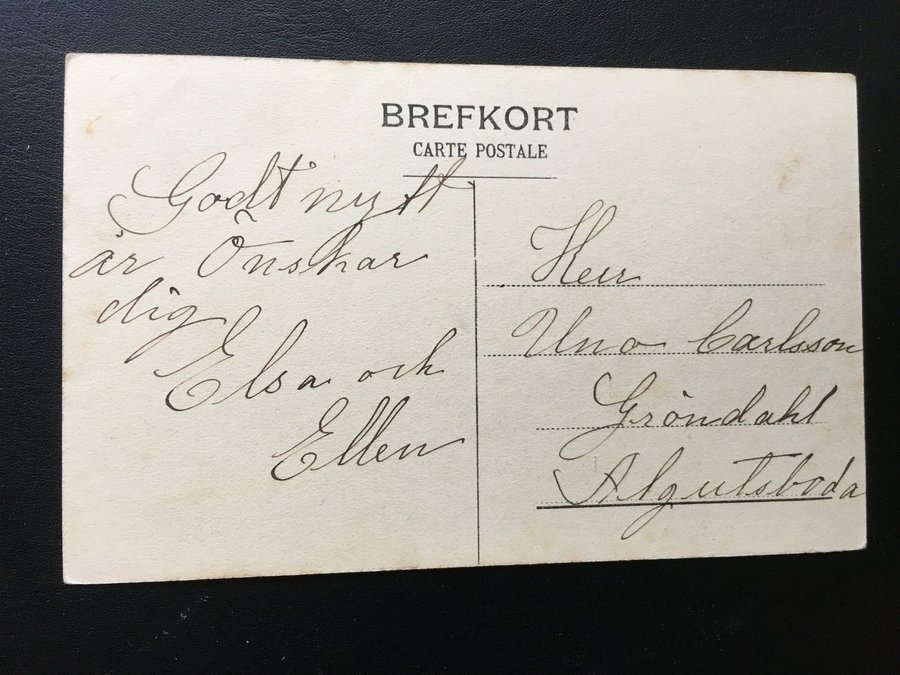 BREFKORT
CARTE POSTALE
Godt nytt
år Önskar
dig
Elsa och
Ellen
Herr
Uno Carlsson
Gröndahl
Algutsboda